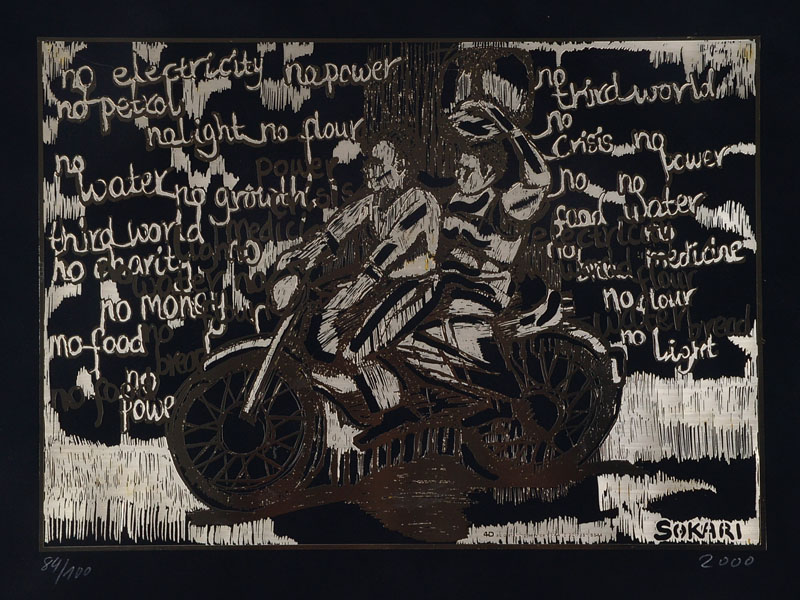 no electricity no power
no petrol
no light no flour
no
water no growth
power
crisis
third world
light medicine
no charity
no
water no
no money
no food
no
bread
no food
no
power
no
third world
no
crisis no
power
no no
food water
electricity
no
medicine
flour
no flour
water bread
no light
SOKARI
84/100
2000